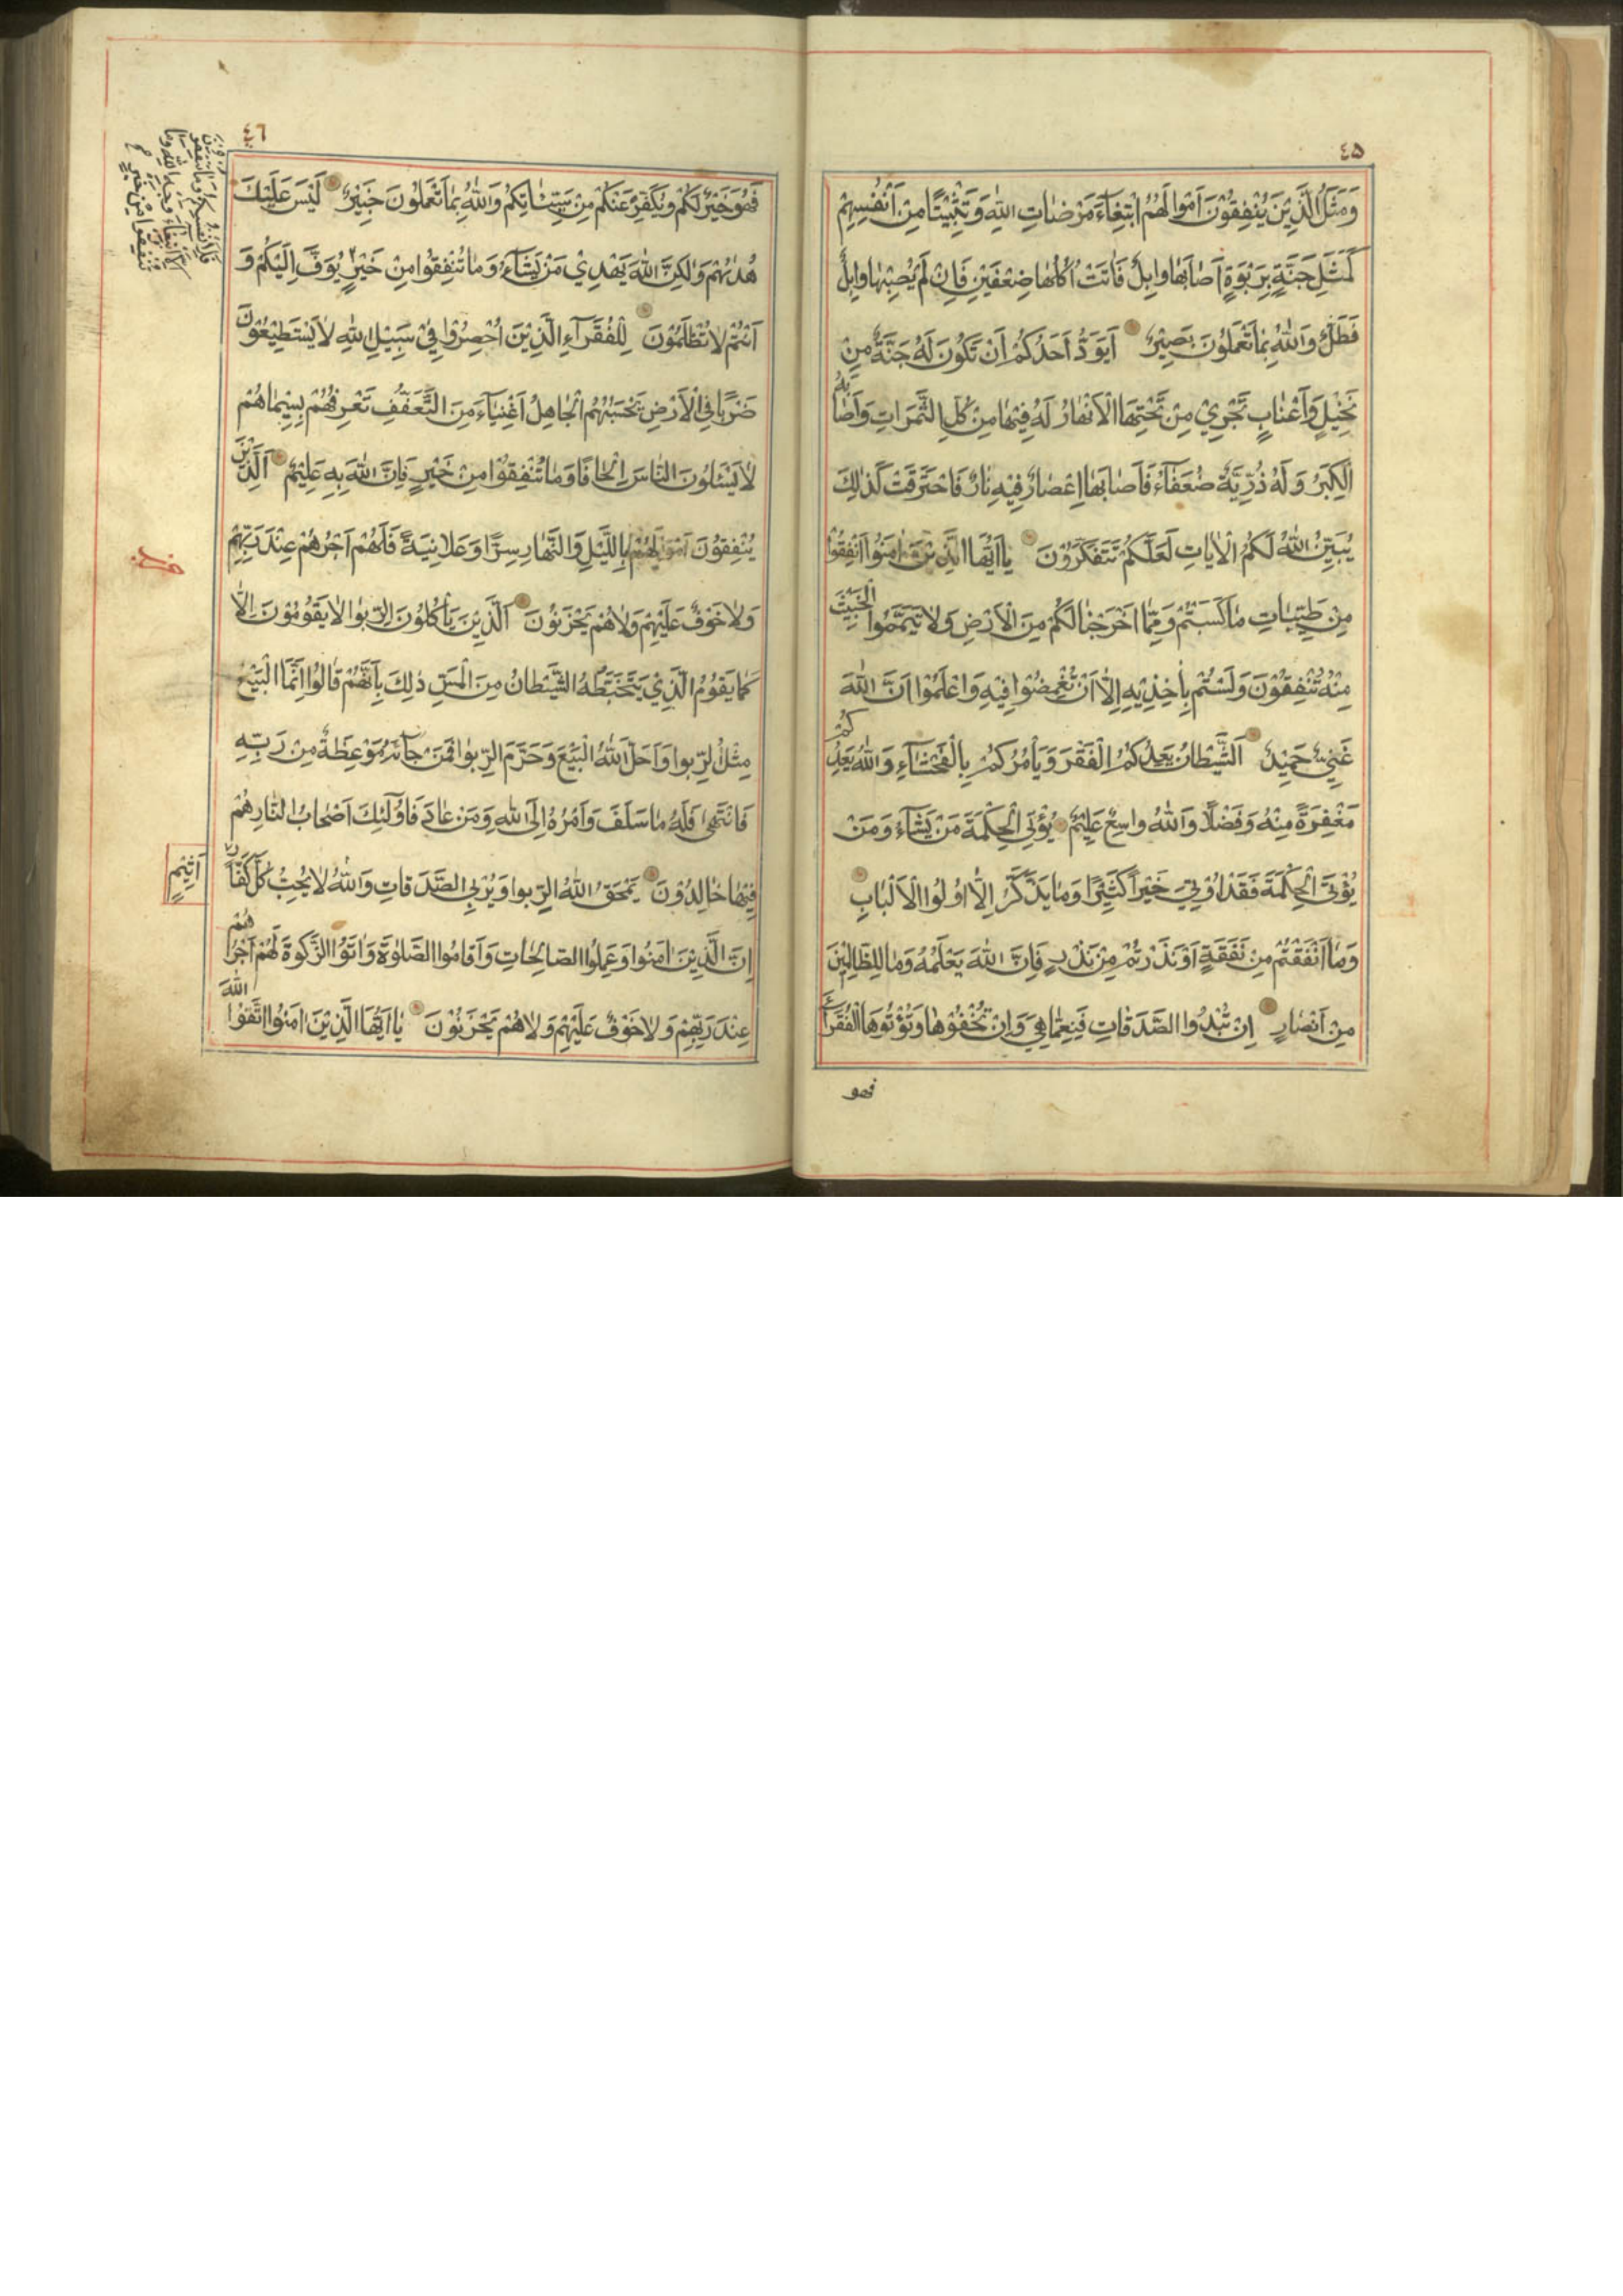 ٤٥
وَمَثَلُ الَّذِيْنَ يُنْفِقُوْنَ اَمْوٰالَهُمُ ابْتِغٰآءَ مَرْضٰاتِ اللّٰهِ وَتَثْبِيْتًا مِنْ اَنْفُسِهِمْ
كَمَثَلِ جَنَّةٍ بِرَبْوَةٍ اَصٰابَهٰا وٰابِلٌ فَاٰتَتْ اُكُلَهٰا ضِعْفَيْنِ فَاِنْ لَمْ يُصِبْهٰا وٰابِلٌ
فَطَلٌّ وَاللّٰهُ بِمٰا تَعْمَلُوْنَ بَصِيْرٌ اَيَوَدُّ اَحَدُكُمْ اَنْ تَكُوْنَ لَهُ جَنَّةٌ مِنْ
نَخِيْلٍ وَاَعْنٰابٍ تَجْرِيْ مِنْ تَحْتِهَا الْاَنْهٰارُ لَهُ فِيْهٰا مِنْ كُلِّ الثَّمَرٰاتِ وَاَصٰابَهُ
الْكِبَرُ وَلَهُ ذُرِّيَّةٌ ضُعَفٰآءُ فَاَصٰابَهٰا اِعْصٰارٌ فِيْهِ نٰارٌ فَاحْتَرَقَتْ كَذٰلِكَ
يُبَيِّنُ اللّٰهُ لَكُمُ الْاٰيٰاتِ لَعَلَّكُمْ تَتَفَكَّرُوْنَ يٰا اَيُّهَا الَّذِيْنَ اٰمَنُوْا اَنْفِقُوْا
مِنْ طَيِّبٰاتِ مٰا كَسَبْتُمْ وَمِمّٰا اَخْرَجْنٰا لَكُمْ مِنَ الْاَرْضِ وَلٰا تَيَمَّمُوا الْخَبِيْثَ
مِنْهُ تُنْفِقُوْنَ وَلَسْتُمْ بِاٰخِذِيْهِ اِلّٰا اَنْ تُغْمِضُوْا فِيْهِ وَاعْلَمُوْا اَنَّ اللّٰهَ
غَنِيٌّ حَمِيْدٌ اَلشَّيْطٰانُ يَعِدُكُمُ الْفَقْرَ وَيَأْمُرُكُمْ بِالْفَحْشٰآءِ وَاللّٰهُ يَعِدُكُمْ
مَغْفِرَةً مِنْهُ وَفَضْلًا وَاللّٰهُ وٰاسِعٌ عَلِيْمٌ يُؤْتِي الْحِكْمَةَ مَنْ يَشٰآءُ وَمَنْ
يُؤْتَ الْحِكْمَةَ فَقَدْ اُوْتِيَ خَيْرًا كَثِيْرًا وَمٰا يَذَّكَّرُ اِلّٰا اُولُوا الْاَلْبٰابِ
وَمٰا اَنْفَقْتُمْ مِنْ نَفَقَةٍ اَوْ نَذَرْتُمْ مِنْ نَذْرٍ فَاِنَّ اللّٰهَ يَعْلَمُهُ وَمٰا لِلظّٰالِمِيْنَ
مِنْ اَنْصٰارٍ اِنْ تُبْدُوا الصَّدَقٰاتِ فَنِعِمّٰا هِيَ وَاِنْ تُخْفُوْهٰا وَتُؤْتُوْهَا الْفُقَرٰآءَ
فهو
٤٦
فَهُوَ خَيْرٌ لَكُمْ وَيُكَفِّرُ عَنْكُمْ مِنْ سَيِّئٰاتِكُمْ وَاللّٰهُ بِمٰا تَعْمَلُوْنَ خَبِيْرٌ لَيْسَ عَلَيْكَ
هُدٰيهُمْ وَلٰكِنَّ اللّٰهَ يَهْدِيْ مَنْ يَشٰآءُ وَمٰا تُنْفِقُوْا مِنْ خَيْرٍ يُوَفَّ اِلَيْكُمْ وَ
اَنْتُمْ لٰا تُظْلَمُوْنَ لِلْفُقَرٰآءِ الَّذِيْنَ اُحْصِرُوْا فِيْ سَبِيْلِ اللّٰهِ لٰا يَسْتَطِيْعُوْنَ
ضَرْبًا فِي الْاَرْضِ يَحْسَبُهُمُ الْجٰاهِلُ اَغْنِيٰآءَ مِنَ التَّعَفُّفِ تَعْرِفُهُمْ بِسِيْمٰاهُمْ
لٰا يَسْئَلُوْنَ النّٰاسَ اِلْحٰافًا وَمٰا تُنْفِقُوْا مِنْ خَيْرٍ فَاِنَّ اللّٰهَ بِهِ عَلِيْمٌ اَلَّذِيْنَ
يُنْفِقُوْنَ اَمْوٰالَهُمْ بِاللَّيْلِ وَالنَّهٰارِ سِرًّا وَعَلٰانِيَةً فَلَهُمْ اَجْرُهُمْ عِنْدَ رَبِّهِمْ
وَلٰا خَوْفٌ عَلَيْهِمْ وَلٰا هُمْ يَحْزَنُوْنَ اَلَّذِيْنَ يَأْكُلُوْنَ الرِّبٰوا لٰا يَقُوْمُوْنَ اِلّٰا
كَمٰا يَقُوْمُ الَّذِيْ يَتَخَبَّطُهُ الشَّيْطٰانُ مِنَ الْمَسِّ ذٰلِكَ بِاَنَّهُمْ قٰالُوْا اِنَّمَا الْبَيْعُ
مِثْلُ الرِّبٰوا وَاَحَلَّ اللّٰهُ الْبَيْعَ وَحَرَّمَ الرِّبٰوا فَمَنْ جٰآءَهُ مَوْعِظَةٌ مِنْ رَبِّهِ
فَانْتَهٰى فَلَهُ مٰا سَلَفَ وَاَمْرُهُ اِلَى اللّٰهِ وَمَنْ عٰادَ فَاُولٰٓئِكَ اَصْحٰابُ النّٰارِ هُمْ
فِيْهٰا خٰالِدُوْنَ يَمْحَقُ اللّٰهُ الرِّبٰوا وَيُرْبِي الصَّدَقٰاتِ وَاللّٰهُ لٰا يُحِبُّ كُلَّ كَفّٰارٍ
اَثِيْمٍ
اِنَّ الَّذِيْنَ اٰمَنُوْا وَعَمِلُوا الصّٰالِحٰاتِ وَاَقٰامُوا الصَّلٰوةَ وَاٰتَوُا الزَّكٰوةَ لَهُمْ اَجْرُهُمْ
عِنْدَ رَبِّهِمْ وَلٰا خَوْفٌ عَلَيْهِمْ وَلٰا هُمْ يَحْزَنُوْنَ يٰا اَيُّهَا الَّذِيْنَ اٰمَنُوا اتَّقُوا اللّٰهَ
فلانفسكم وما تنفقون
الا ابتغاء وجه الله وما
تنفقوا من خير